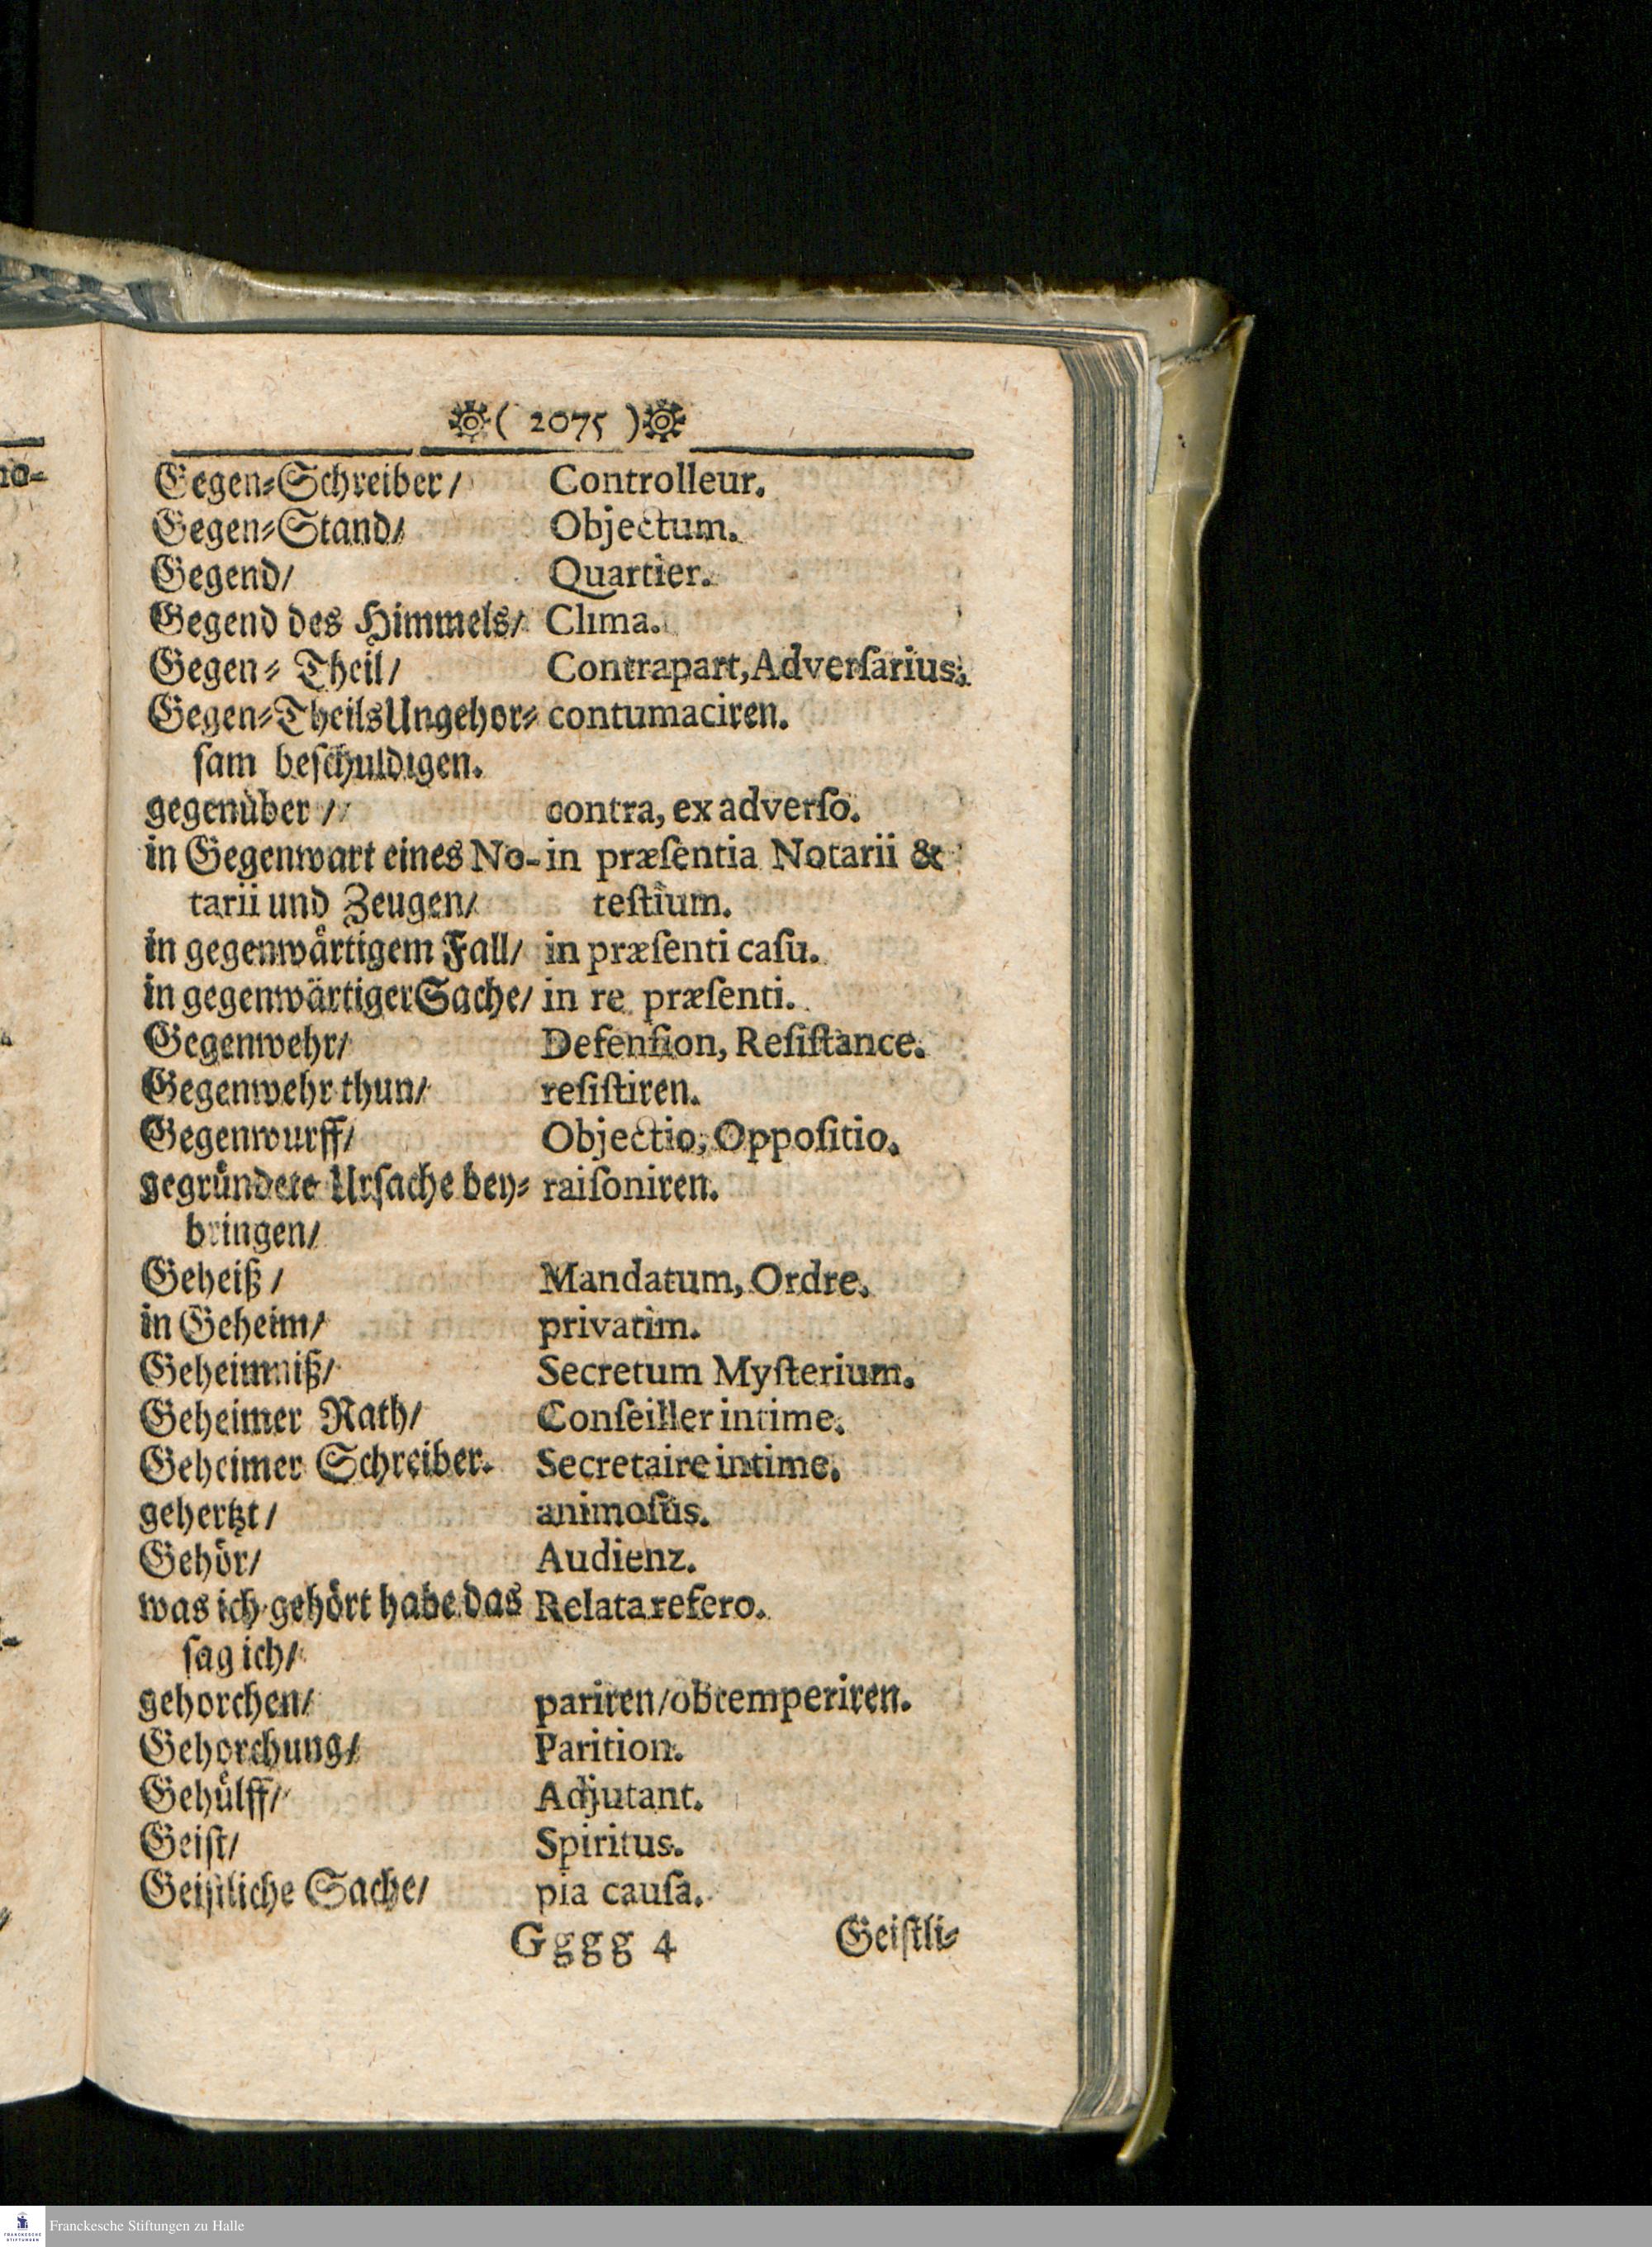 ( 2075 )
Gegen-Schreiber/ Controlleur.
Gegen-Stand/ Objectum.
Gegend/ Quartier.
Gegend des Himmels/ Clima.
Gegen- Theil/ Contrapart, Adverſarius.
Gegen-Theils Ungehor- contumaciren.
ſam beſchuldigen.
gegenüber / contra, ex adverſo.
in Gegenwart eines No- in præſentia Notarii &
tarii und Zeugen/ teſtium.
in gegenwärtigem Fall/ in præſenti caſu.
in gegenwärtiger Sache/ in re præſenti.
Gegenwehr/ Defenſion, Reſiſtance.
Gegenwehr thun/ reſiſtiren.
Gegenwurff/ Objectio, Oppoſitio.
gegründete Urſache bey- raiſoniren.
bringen/
Geheiß / Mandatum, Ordre.
in Geheim/ privatim.
Geheimniß/ Secretum Myſterium.
Geheimer Rath/ Conſeiller intime.
Geheimer Schreiber. Secretaire intime.
gehertzt/ animoſus.
Gehör/ Audienz.
was ich gehört habe das Relata refero.
ſag ich/
gehorchen/ pariren/obtemperiren.
Gehorchung/ Parition.
Gehülff/ Adjutant.
Geiſt/ Spiritus.
Geiſtliche Sache/ pia cauſa.
Gggg 4 Geiſtli-
no-
Franckesche Stiftungen zu Halle
FRANCKESCHE
STIFTUNGEN